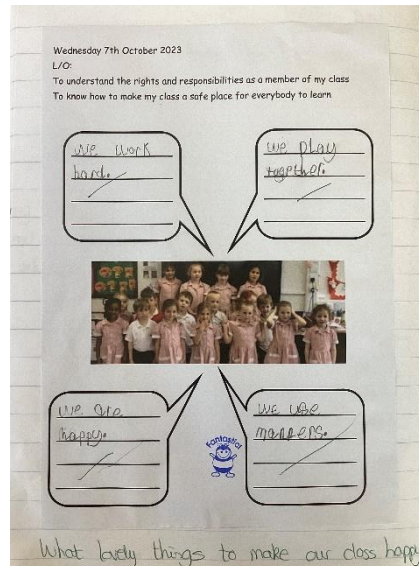 Wednesday 7th October 2023
L/O:
To understand the rights and responsibilities as a member of my class
To know how to make my class a safe place for everybody to learn
we work
hard.
we play
together.
we are
happy.
we use
manners.
Fantastic!
What lovely things to make our class happy